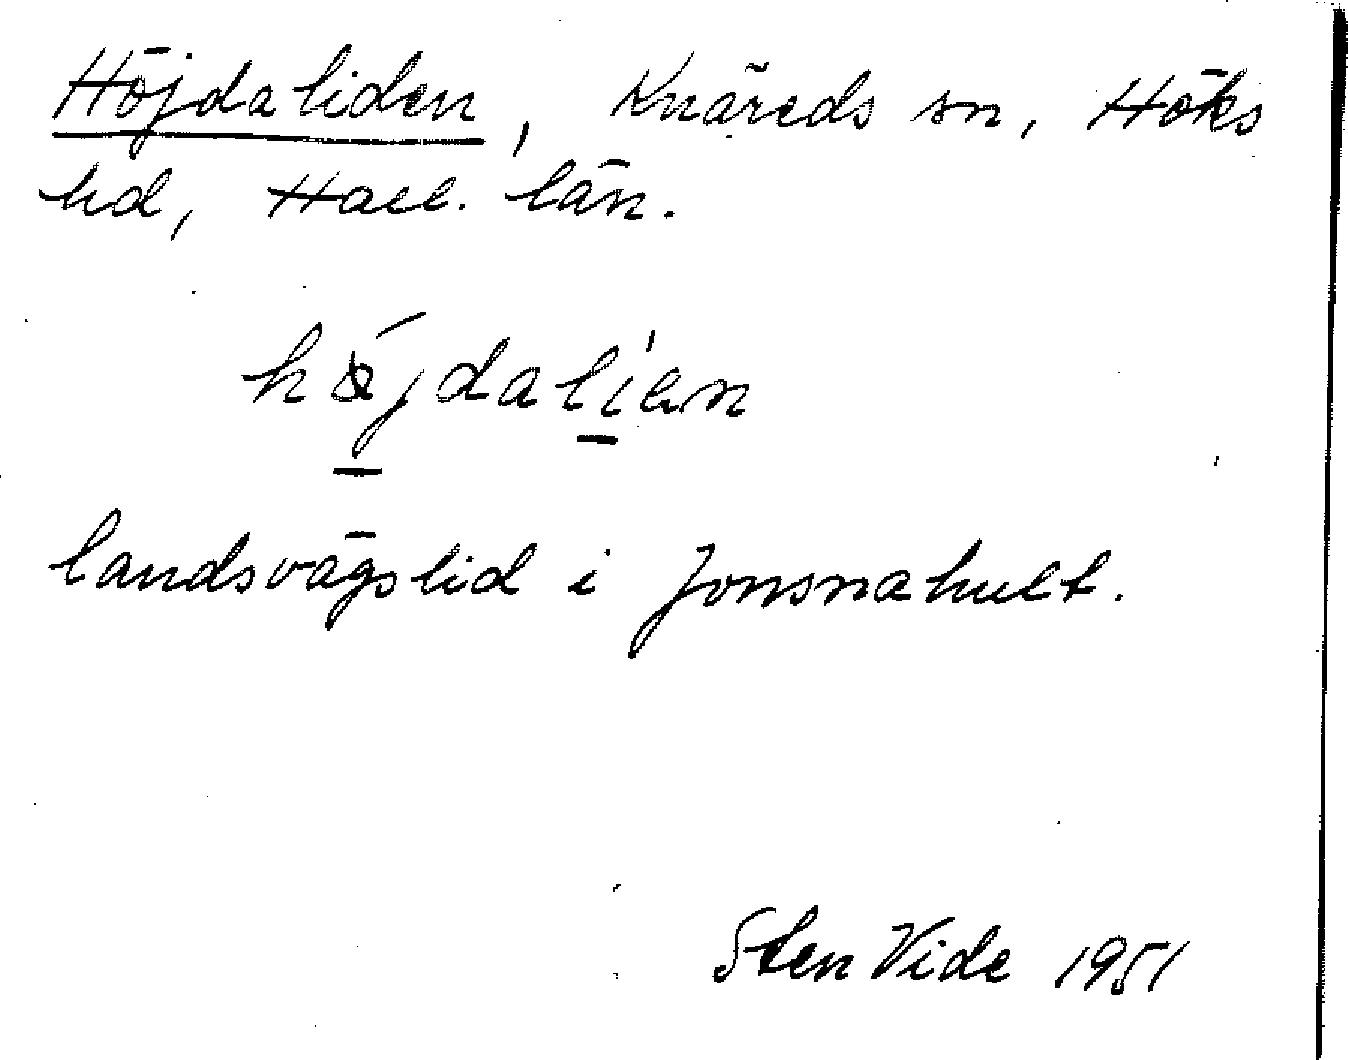 Höjdaliden, Knäreds sn, Höks
hd, Hall. län.
höjdalien
landsvägslid i Jonsnahult.
Sten Vide 1951